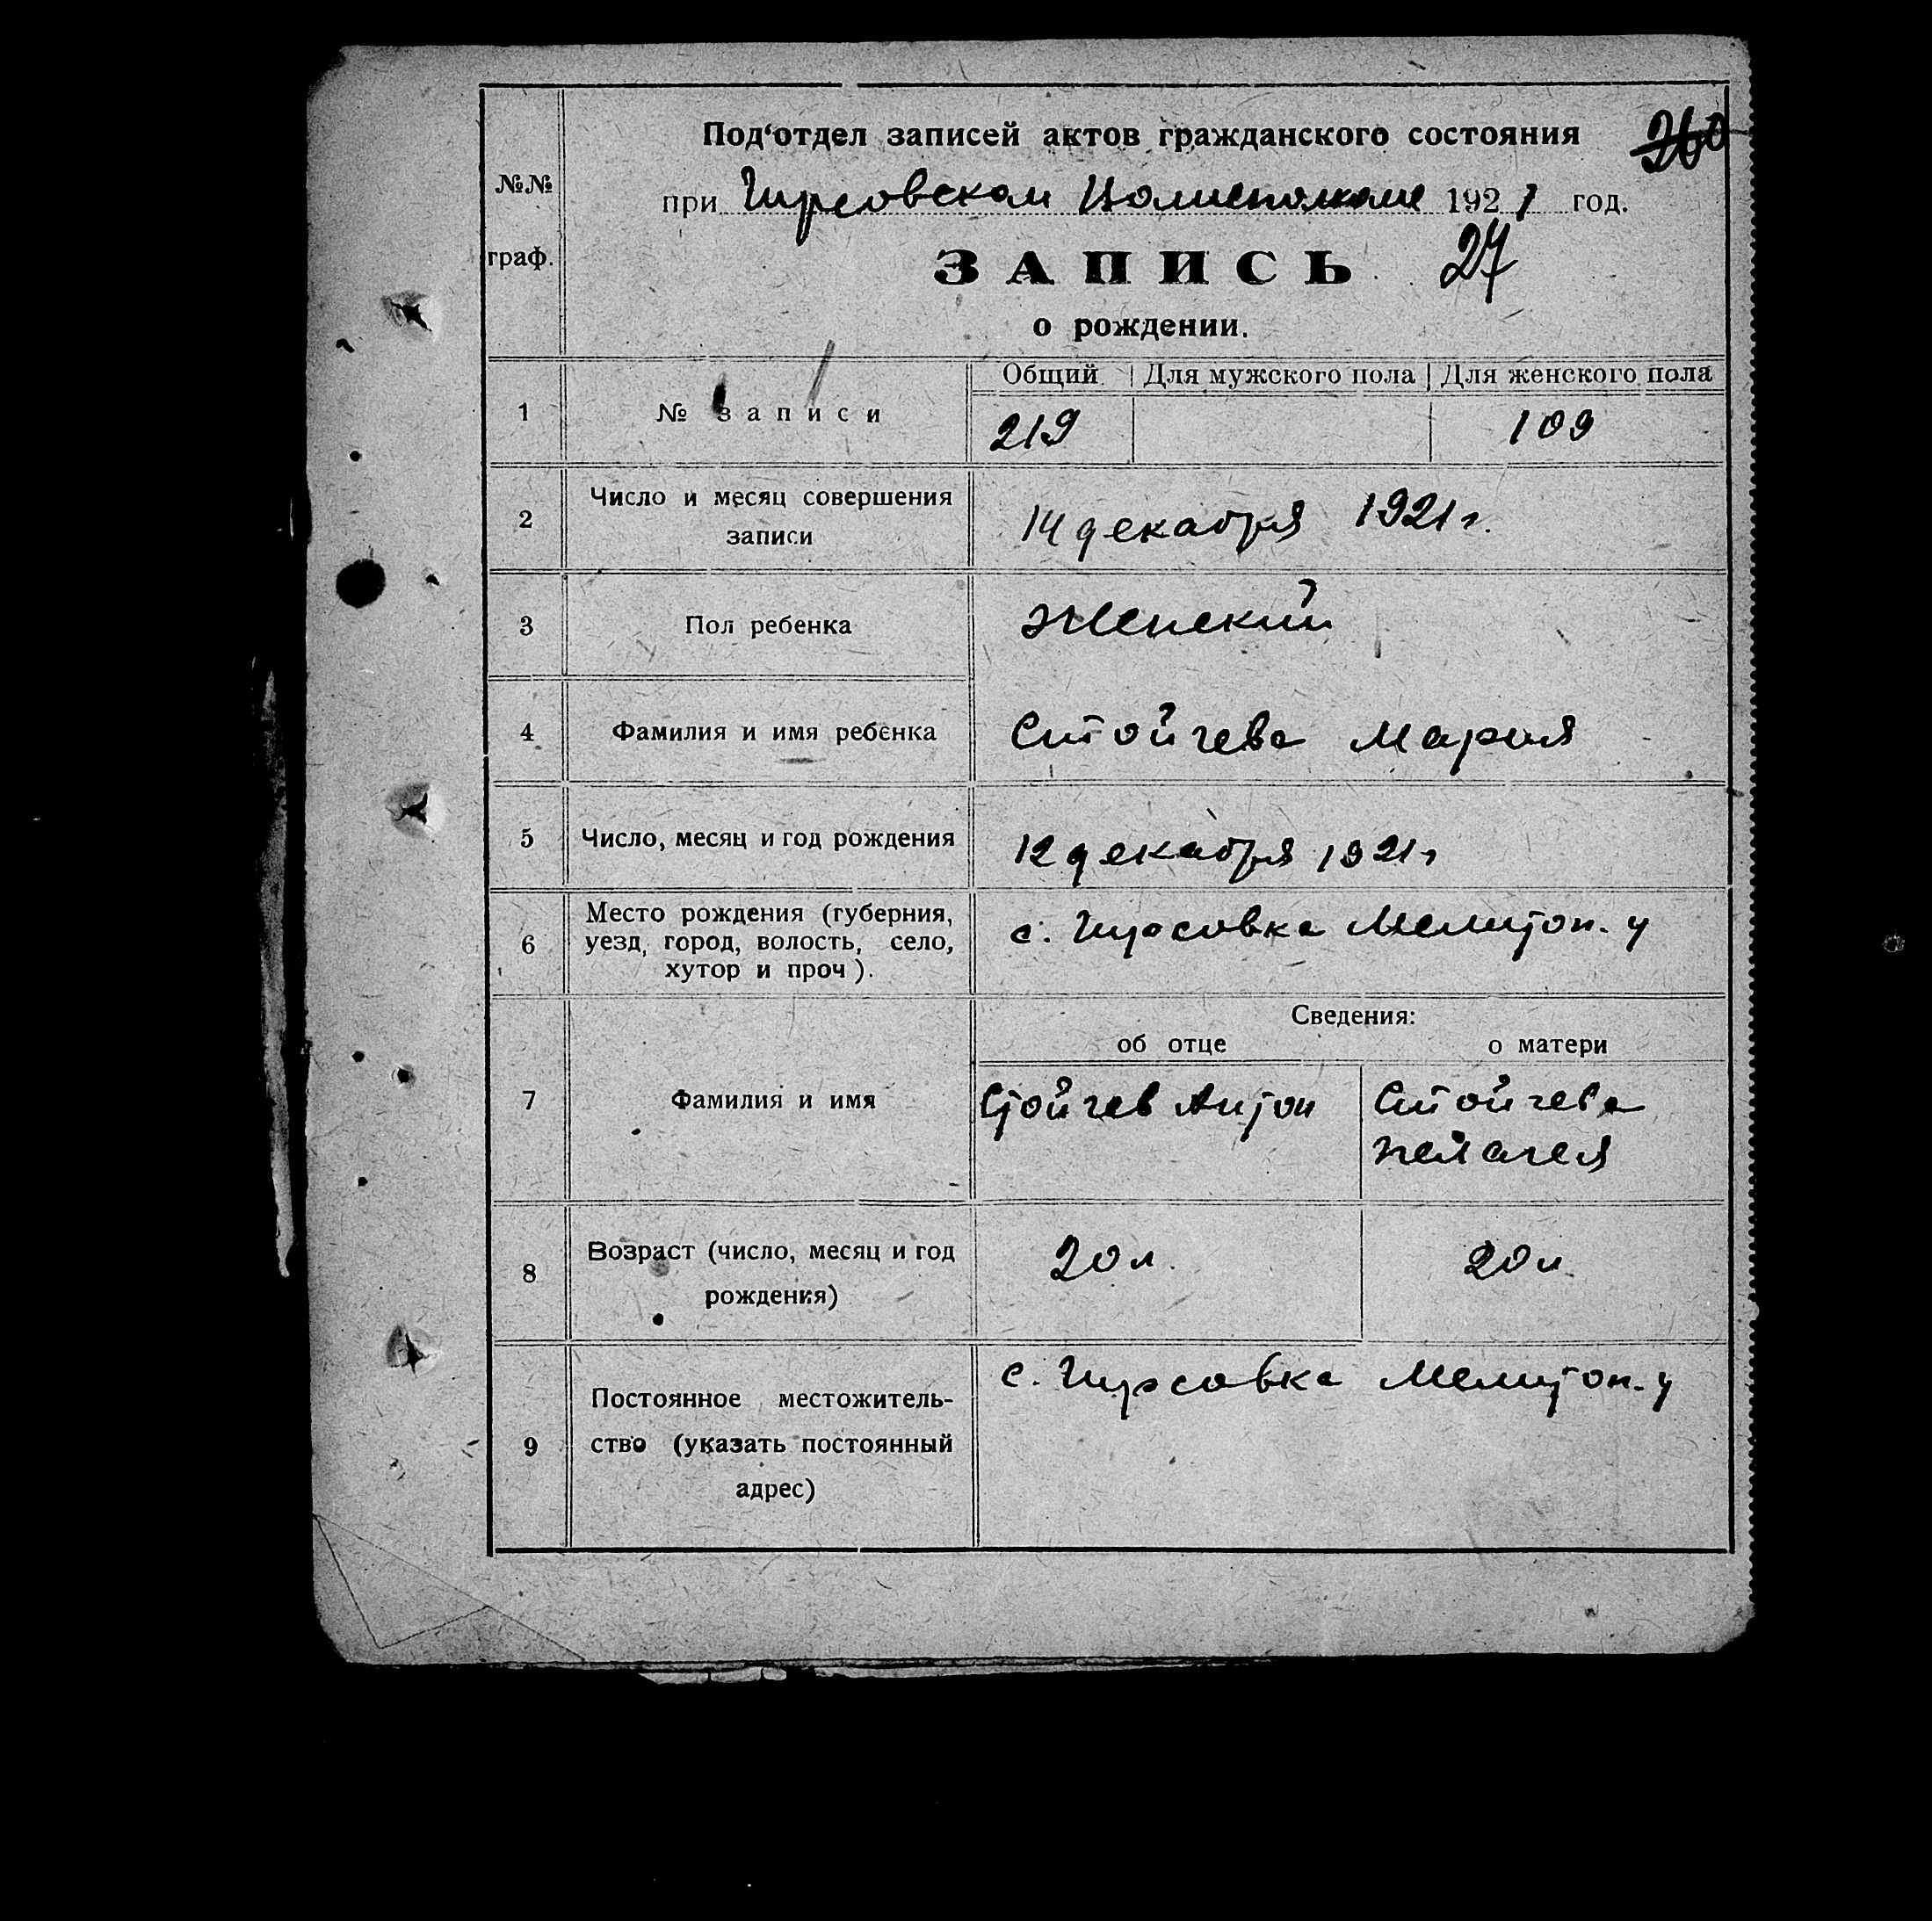 Под‘отдел записей актов гражданского состояния
260
№№
при Гирсовском Волисполкоме 1921 год.
граф.
ЗАПИСЬ 27
о рождении.
Общий Для мужского пола Для женского пола
1 № записи 219 109
2 Число и месяц совершения
записи 14 декабря 1921 г.
3 Пол ребенка Женский
4 Фамилия и имя ребенка Стойчева Мария
5 Число, месяц и год рождения 12 декабря 1921 г
6 Место рождения (губерния,
уезд, город, волость, село,
хутор и проч). с. Гирсовка Мелитоп. у
Сведения:
об отце о матери
7 Фамилия и имя Стойчев Антон Стойчева
Пелагея
8 Возраст (число, месяц и год
рождения) 20 л. 20 л
9 Постоянное местожитель-
ство (указать постоянный
адрес) с. Гирсовка Мелитоп. у